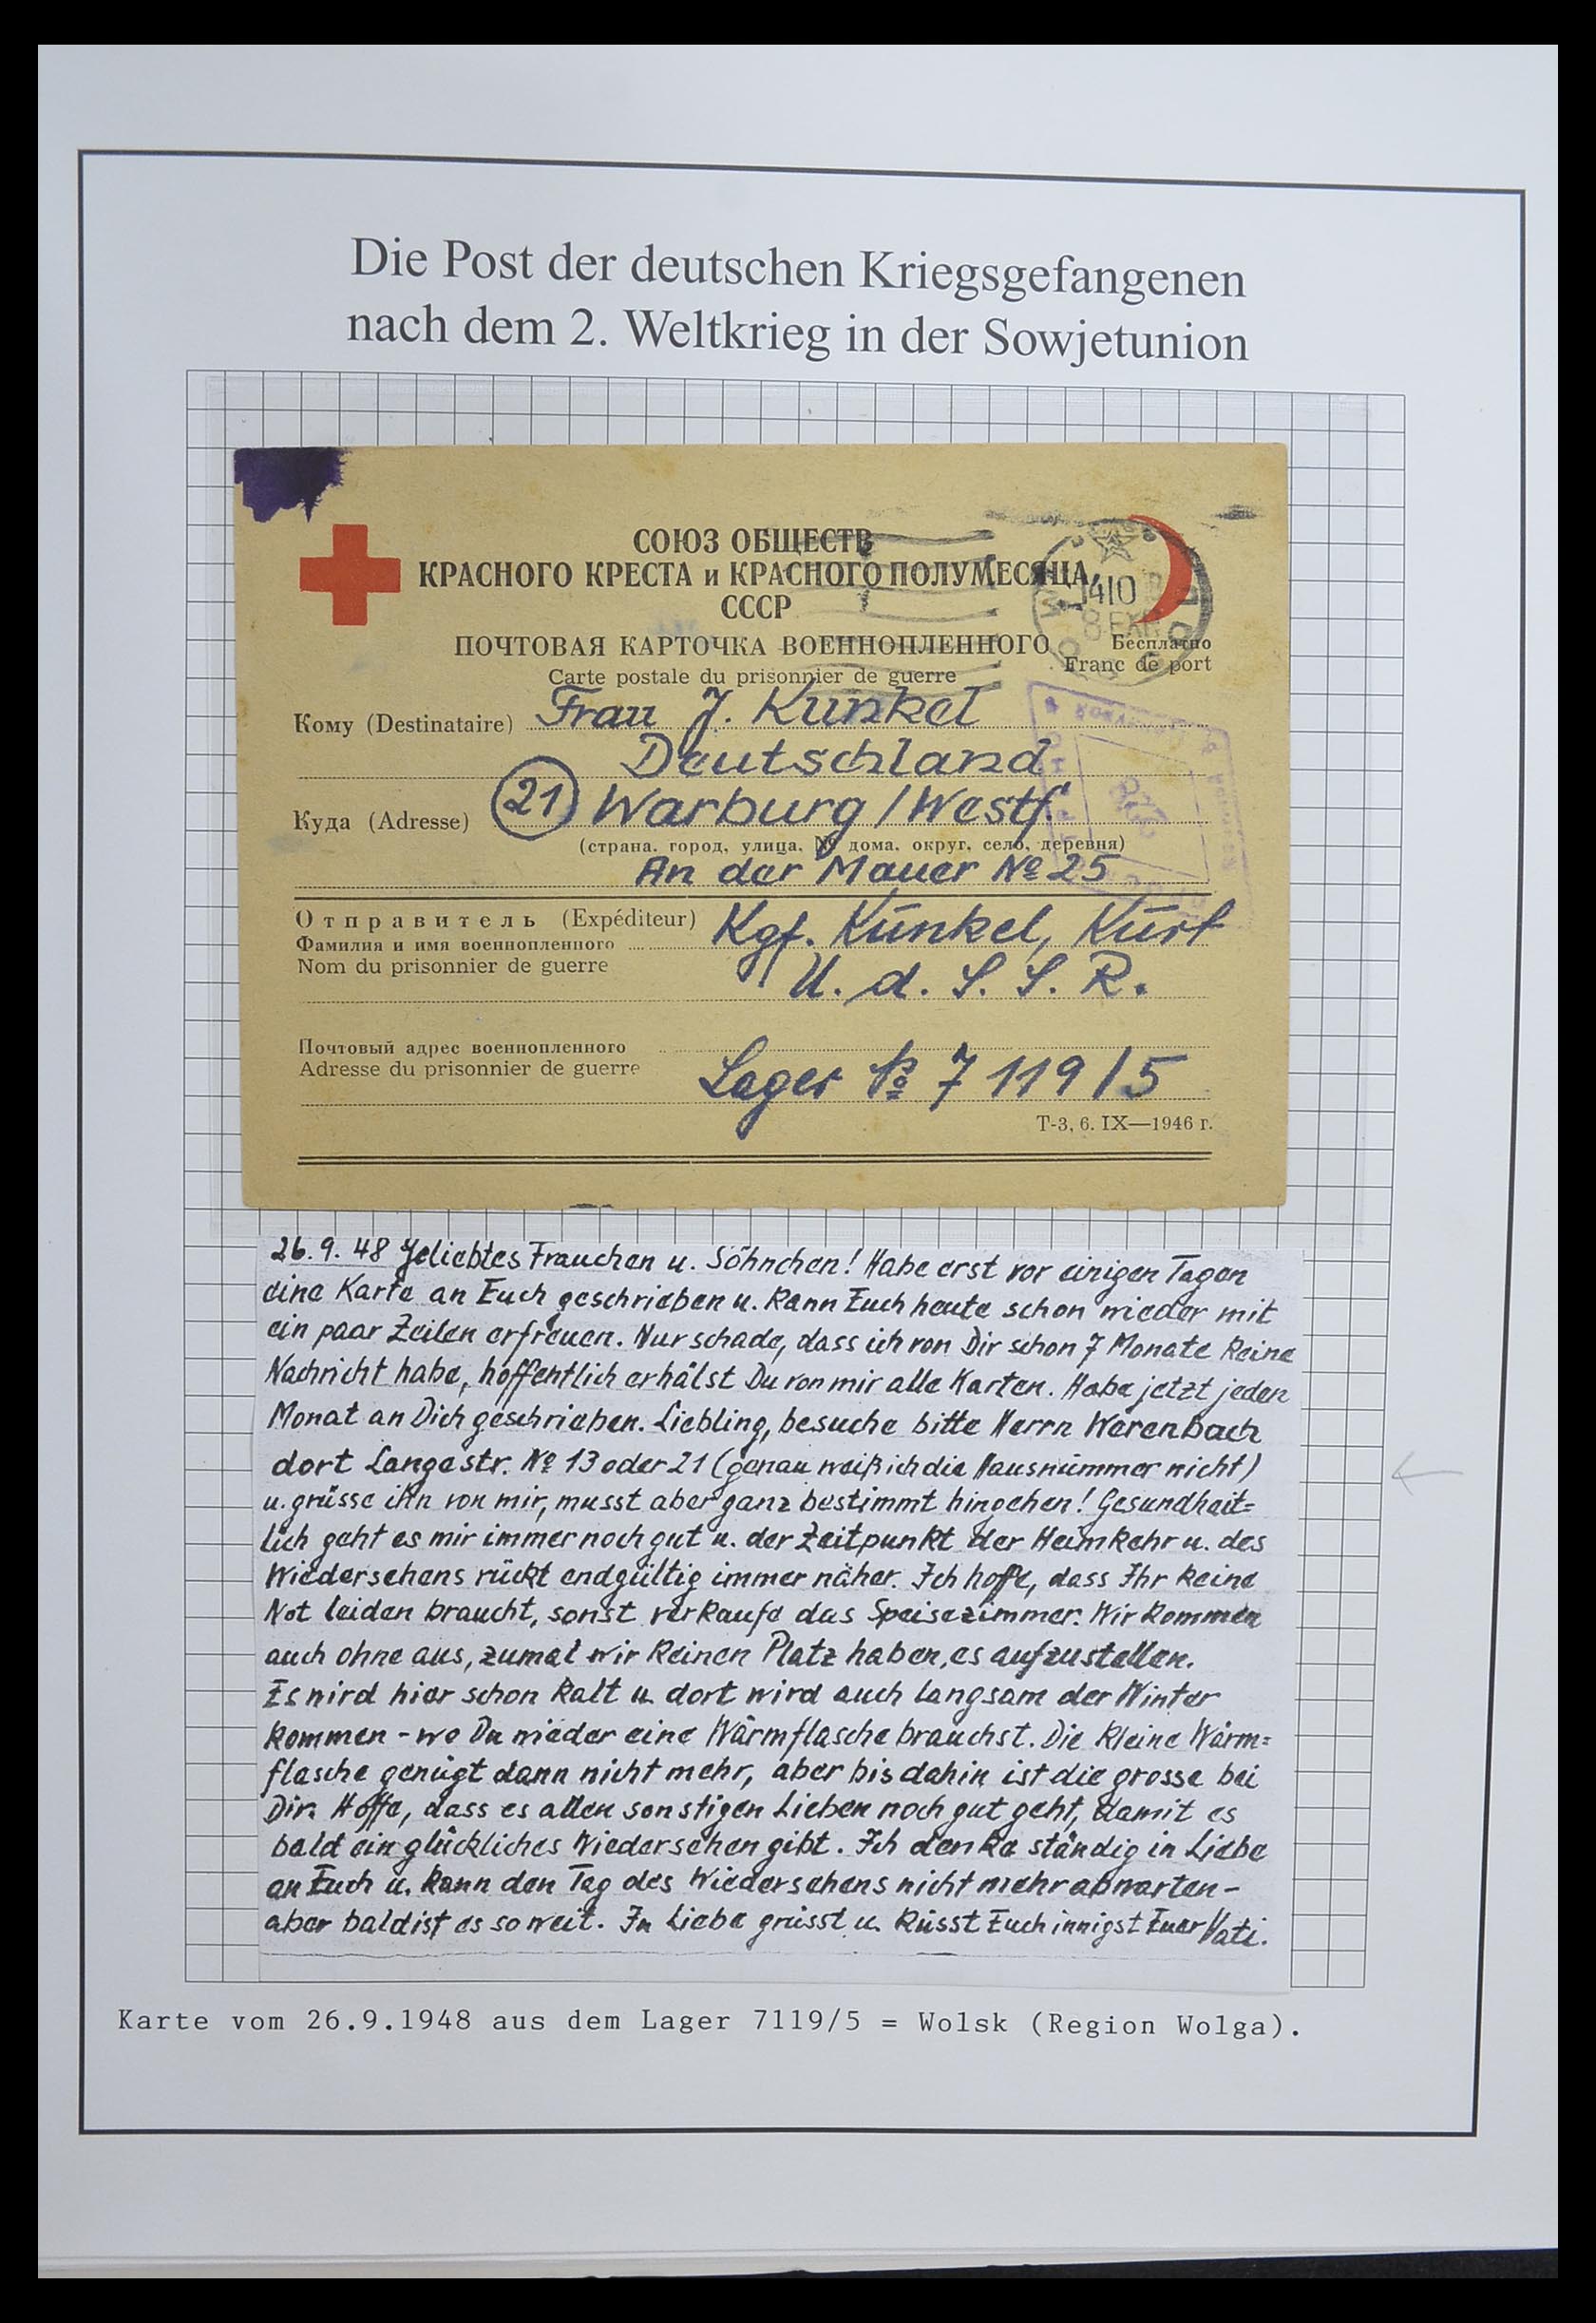 Die Post der deutschen Kriegsgefangenen
nach dem 2. Weltkrieg in der Sowjetunion
СОЮЗ ОБЩЕСТВ
КРАСНОГО КРЕСТА и КРАСНОГО ПОЛУМЕСЯЦА
СССР
ПОЧТОВАЯ КАРТОЧКА ВОЕННОПЛЕННОГО
Бесплатно
Carte postale du prisonnier de guerre
Franc de port
Кому (Destinataire) Frau J. Kunkel
Deutschland
Куда (Adresse) (21) Warburg/Westf.
(страна, город, улица, № дома, округ, село, деревня)
An der Mauer № 25
Отправитель (Expéditeur) Kgf. Kunkel, Kurt
Фамилия и имя военнопленного
Nom du prisonnier de guerre
U. d. S. S. R.
Почтовый адрес военнопленного
Adresse du prisonnier de guerre
Lager № 7119/5
Т-3, 6. IX—1946 г.
26.9.48 Geliebtes Frauchen u. Söhnchen! Habe erst vor einigen Tagen
eine Karte an Euch geschrieben u. kann Euch heute schon wieder mit
ein paar Zeilen erfreuen. Nur schade, dass ich von Dir schon 7 Monate keine
Nachricht habe, hoffentlich erhälst Du von mir alle Karten. Habe jetzt jeden
Monat an Dich geschrieben. Liebling, besuche bitte Herrn Wärenbach
dort Langestr. № 13 oder 21 (genau weiß ich die Hausnummer nicht)
u. grüsse ihn von mir, musst aber ganz bestimmt hingehen! Gesundheit=
lich geht es mir immer noch gut u. der Zeitpunkt der Heimkehr u. des
Wiedersehens rückt endgültig immer näher. Ich hoffe, dass Ihr keine
Not leiden braucht, sonst verkaufe das Speisezimmer. Wir kommen
auch ohne aus, zumal wir keinen Platz haben, es aufzustellen.
Es wird hier schon kalt u. dort wird auch langsam der Winter
kommen - wo Du wieder eine Wärmflasche brauchst. Die kleine Wärm=
flasche genügt dann nicht mehr, aber bis dahin ist die grosse bei
Dir. Hoffe, dass es allen sonstigen Lieben noch gut geht, damit es
bald ein glückliches Wiedersehen gibt. Ich denke ständig in Liebe
an Euch u. kann den Tag des Wiedersehens nicht mehr abwarten -
aber bald ist es soweit. In Liebe grüsst u. küsst Euch innigst Euer Vati.
Karte vom 26.9.1948 aus dem Lager 7119/5 = Wolsk (Region Wolga).